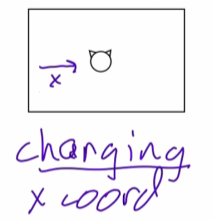 x
changing
x coord